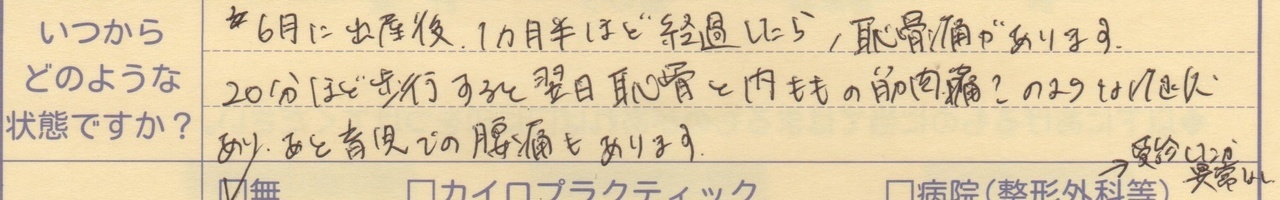 いつから
どのような
状態ですか？
6月に出産後、1ヵ月半ほど経過したら、恥骨痛があります。
20分ほど歩行すると翌日恥骨と内ももの筋肉痛？のような
あり。あと育児での腰痛もあります。
→受診したが
異常なし
☑無 □カイロプラクティック □病院（整形外科等）